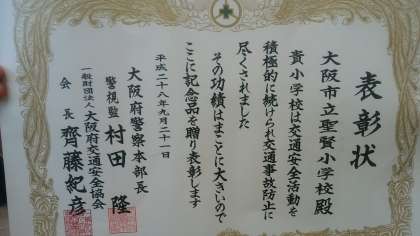 表彰状
大阪市立聖賢小学校殿
貴小学校は交通安全活動を
積極的に続けられ交通事故防止に
尽くされました
その功績はまことに大きいので
ここに記念品を贈り表彰します
平成二十八年九月二十一日
大阪府警察本部長
警視監 村田 隆
一般財団法人 大阪府交通安全協会
会長 齊藤紀彦